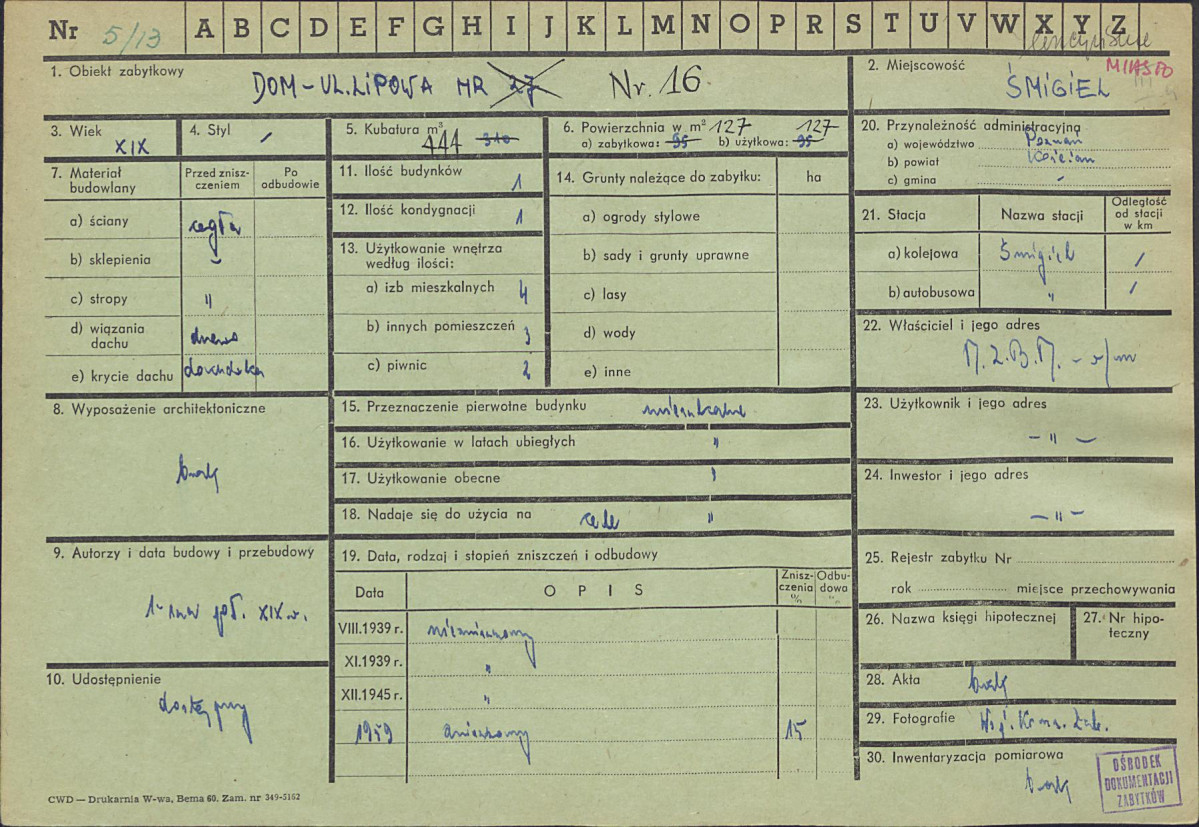 Nr 5/13 A B C D E F G H I J K L M N O P R S T U V W X Y Z
1. Obiekt zabytkowy
DOM - UL. LIPOWA NR 27 Nr. 16
2. Miejscowość MIASTO
ŚMIGIEL
3. Wiek
XIX
4. Styl
/
5. Kubatura m³
444 310
6. Powierzchnia w m² 127 127
a) zabytkowa: 95 b) użytkowa: 95
20. Przynależność administracyjna
a) województwo Poznań
b) powiat Kościan
c) gmina -
7. Materiał budowlany
Przed zniszczeniem
Po odbudowie
a) ściany cegła
b) sklepienia -
c) stropy "
d) wiązania dachu drewno
e) krycie dachu dachówka
11. Ilość budynków 1
12. Ilość kondygnacji 1
13. Użytkowanie wnętrza
według ilości:
a) izb mieszkalnych 4
b) innych pomieszczeń 3
c) piwnic 2
14. Grunty należące do zabytku: ha
a) ogrody stylowe
b) sady i grunty uprawne
c) lasy
d) wody
e) inne
21. Stacja Nazwa stacji Odległość od stacji w km
a) kolejowa Śmigiel /
b) autobusowa " /
22. Właściciel i jego adres
M.Z.B.M. - w/m
8. Wyposażenie architektoniczne
brak
15. Przeznaczenie pierwotne budynku mieszkalne
16. Użytkowanie w latach ubiegłych "
17. Użytkowanie obecne "
18. Nadaje się do użycia na cele "
23. Użytkownik i jego adres
- " -
24. Inwestor i jego adres
- " -
9. Autorzy i data budowy i przebudowy
1-sza poł. XIX w.
19. Data, rodzaj i stopień zniszczeń i odbudowy
Data O P I S Zniszczenia % Odbudowa %
VIII.1939 r. niezniszczony
XI.1939 r. "
XII.1945 r. "
1959 zniszczony 15
25. Rejestr zabytku Nr
rok miejsce przechowywania
26. Nazwa księgi hipotecznej
27. Nr hipoteczny
10. Udostępnienie
dostępny
28. Akta brak
29. Fotografie Woj. Kons. Zab.
30. Inwentaryzacja pomiarowa
brak
OŚRODEK
DOKUMENTACJI
ZABYTKÓW
CWD — Drukarnia W-wa, Bema 60. Zam. nr 349-5162